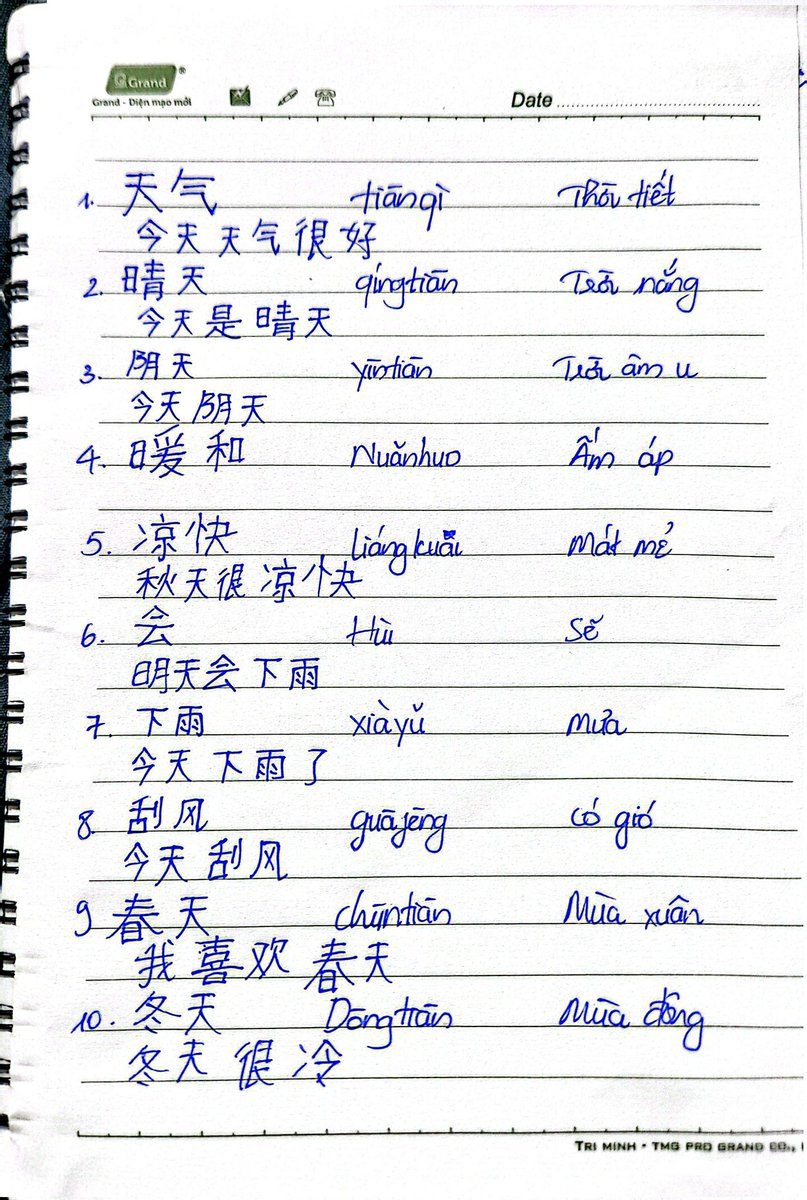 Grand®
Grand - Diện mạo mới
Date
1. 天气 tiānqì Thời tiết
今天天气很好
2. 晴天 qíngtiān Trời nắng
今天是晴天
3. 阴天 yīntiān Trời âm u
今天阴天
4. 暖和 Nuǎnhuo Ấm áp
5. 凉快 liángkuài Mát mẻ
秋天很凉快
6. 会 Hùi Sẽ
明天会下雨
7. 下雨 xiàyǔ Mưa
今天下雨了
8. 刮风 guāfēng Có gió
今天刮风
9 春天 chūntiān Mùa xuân
我喜欢春天
10. 冬天 Dōngtiān Mùa đông
冬天很冷
TRI MINH - TMG PRO GRAND CO.,